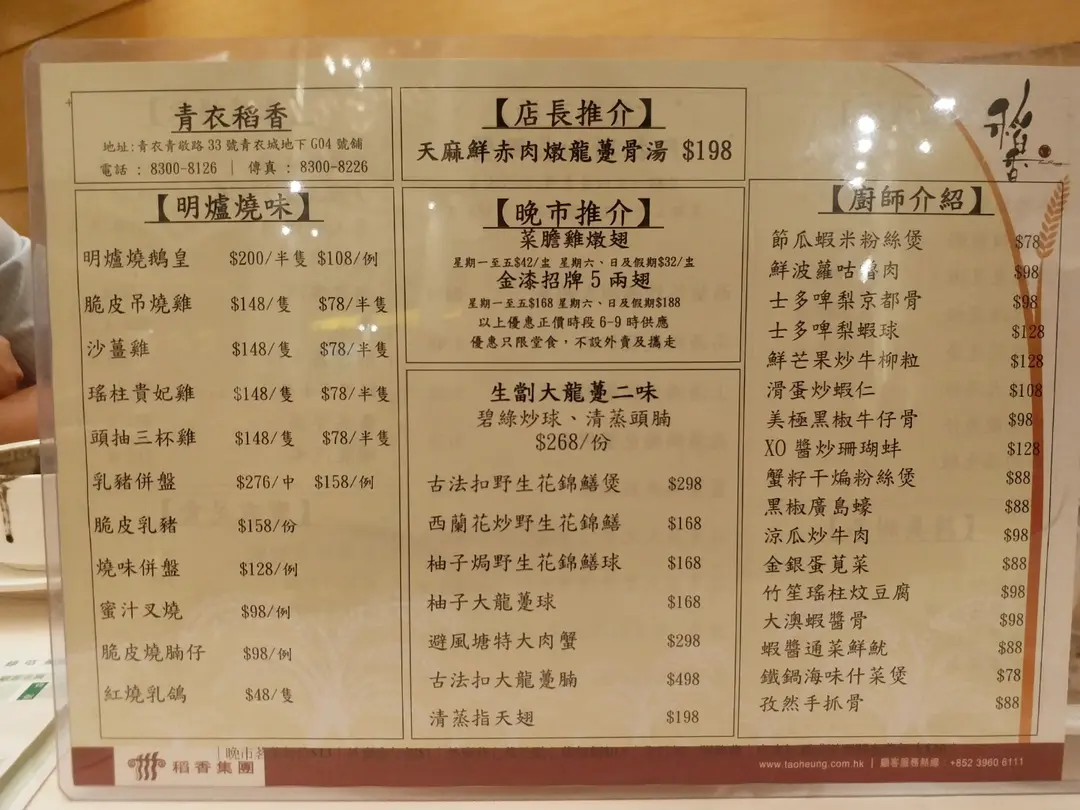 青衣稻香
地址:青衣青敬路33號青衣城地下G04號舖
電話 : 8300-8126 | 傳真 : 8300-8226
【明爐燒味】
明爐燒鵝皇 $200/半隻 $108/例
脆皮吊燒雞 $148/隻 $78/半隻
沙薑雞 $148/隻 $78/半隻
瑤柱貴妃雞 $148/隻 $78/半隻
頭抽三杯雞 $148/隻 $78/半隻
乳豬併盤 $276/中 $158/例
脆皮乳豬 $158/份
燒味併盤 $128/例
蜜汁叉燒 $98/例
脆皮燒腩仔 $98/例
紅燒乳鴿 $48/隻
【店長推介】
天麻鮮赤肉燉龍躉骨湯 $198
【晚市推介】
菜膽雞燉翅
星期一至五$42/盅 星期六、日及假期$32/盅
金漆招牌5兩翅
星期一至五$168 星期六、日及假期$188
以上優惠正價時段6-9時供應
優惠只限堂食，不設外賣及攜走
生劏大龍躉二味
碧綠炒球、清蒸頭腩
$268/份
古法扣野生花錦鱔煲 $298
西蘭花炒野生花錦鱔 $168
柚子焗野生花錦鱔球 $168
柚子大龍躉球 $168
避風塘特大肉蟹 $298
古法扣大龍躉腩 $498
清蒸指天翅 $198
稻香
【廚師介紹】
節瓜蝦米粉絲煲 $78
鮮波蘿咕嚕肉 $98
士多啤梨京都骨 $98
士多啤梨蝦球 $128
鮮芒果炒牛柳粒 $128
滑蛋炒蝦仁 $108
美極黑椒牛仔骨 $98
XO醬炒珊瑚蚌 $128
蟹籽干煸粉絲煲 $88
黑椒廣島蠔 $88
涼瓜炒牛肉 $98
金銀蛋莧菜 $88
竹笙瑤柱炆豆腐 $98
大澳蝦醬骨 $98
蝦醬通菜鮮魷 $88
鐵鍋海味什菜煲 $78
孜然手抓骨 $88
稻香集團
www.taoheung.com.hk | 顧客服務熱線 : +852 3960 6111